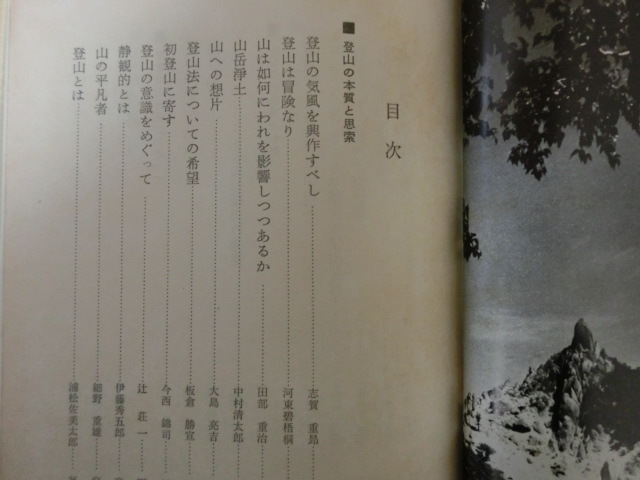 目次
登山の本質と思索
登山の気風を興作すべし 志賀 重昂
登山は冒険なり 河東碧梧桐
山は如何にわれを影響しつつあるか 田部 重治
山岳浄土 中村清太郎
山への想片 大島 亮吉
登山法についての希望 板倉 勝宣
初登山に寄す 今西 錦司
登山の意識をめぐって 辻 荘一
静観的とは 伊藤秀五郎
山の平凡者 細野 重雄
登山とは 浦松佐美太郎